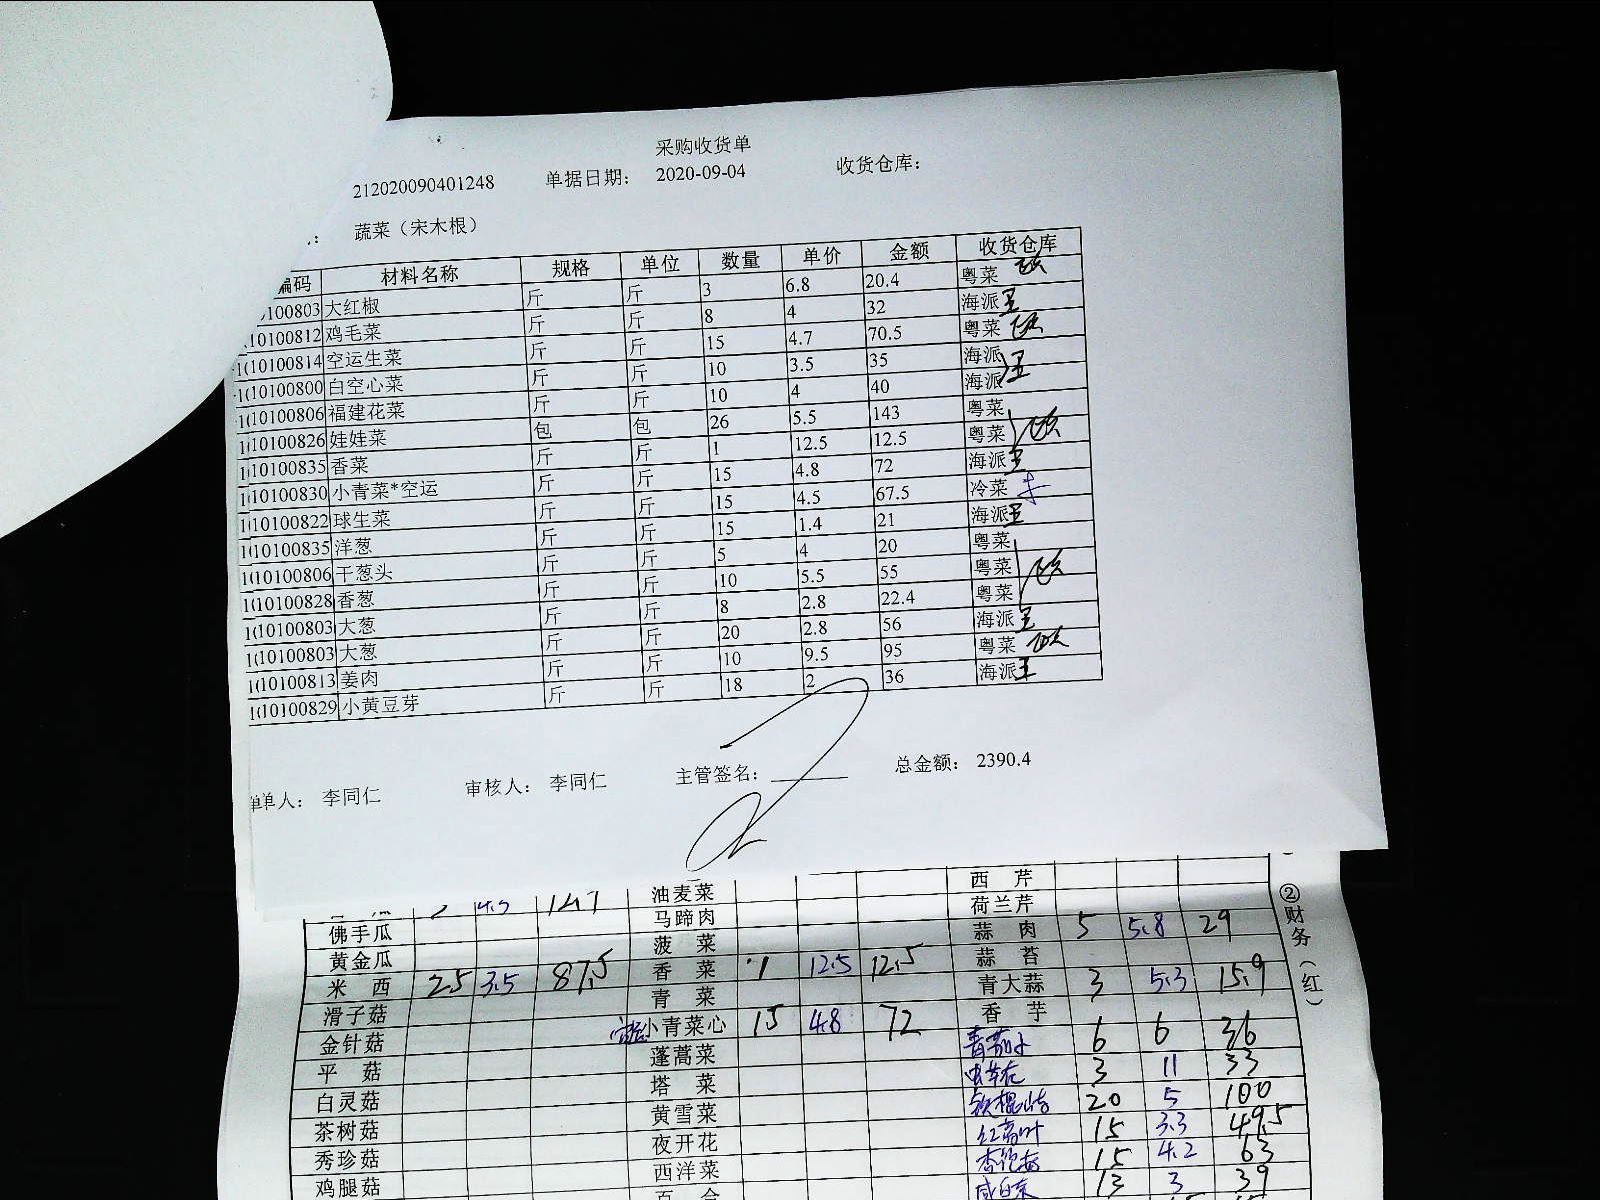 采购收货单
212020090401248 单据日期: 2020-09-04 收货仓库:
: 蔬菜（宋木根）
编码 材料名称 规格 单位 数量 单价 金额 收货仓库
10100803 大红椒 斤 斤 3 6.8 20.4 粤菜
10100812 鸡毛菜 斤 斤 8 4 32 海派 王
10100814 空运生菜 斤 斤 15 4.7 70.5 粤菜
10100800 白空心菜 斤 斤 10 3.5 35 海派
10100806 福建花菜 斤 斤 10 4 40 海派 王
10100826 娃娃菜 包 包 26 5.5 143 粤菜
10100835 香菜 斤 斤 1 12.5 12.5 粤菜
10100830 小青菜*空运 斤 斤 15 4.8 72 海派 王
10100822 球生菜 斤 斤 15 4.5 67.5 冷菜
10100835 洋葱 斤 斤 15 1.4 21 海派 王
10100806 干葱头 斤 斤 5 4 20 粤菜
10100828 香葱 斤 斤 10 5.5 55 粤菜
10100803 大葱 斤 斤 8 2.8 22.4 粤菜
10100803 大葱 斤 斤 20 2.8 56 海派 王
10100813 姜肉 斤 斤 10 9.5 95 粤菜
10100829 小黄豆芽 斤 斤 18 2 36 海派 王
单人: 李同仁 审核人: 李同仁 主管签名: 总金额: 2390.4
油麦菜 西芹
佛手瓜 马蹄肉 荷兰芹
黄金瓜 菠菜 蒜肉 5 5.8 29
米西 25 3.5 87.5 香菜 1 12.5 12.5 蒜苔
滑子菇 青菜 青大蒜 3 5.3 15.9
金针菇 小青菜心 15 4.8 72 香芋
平菇 蓬蒿菜 6 6 36
白灵菇 塔菜 虫草花 3 11 33
茶树菇 黄雪菜 20 5 100
秀珍菇 夜开花 15 3.3 49.5
鸡腿菇 西洋菜 15 4.2 63
百合 13 3 39
②财务（红）